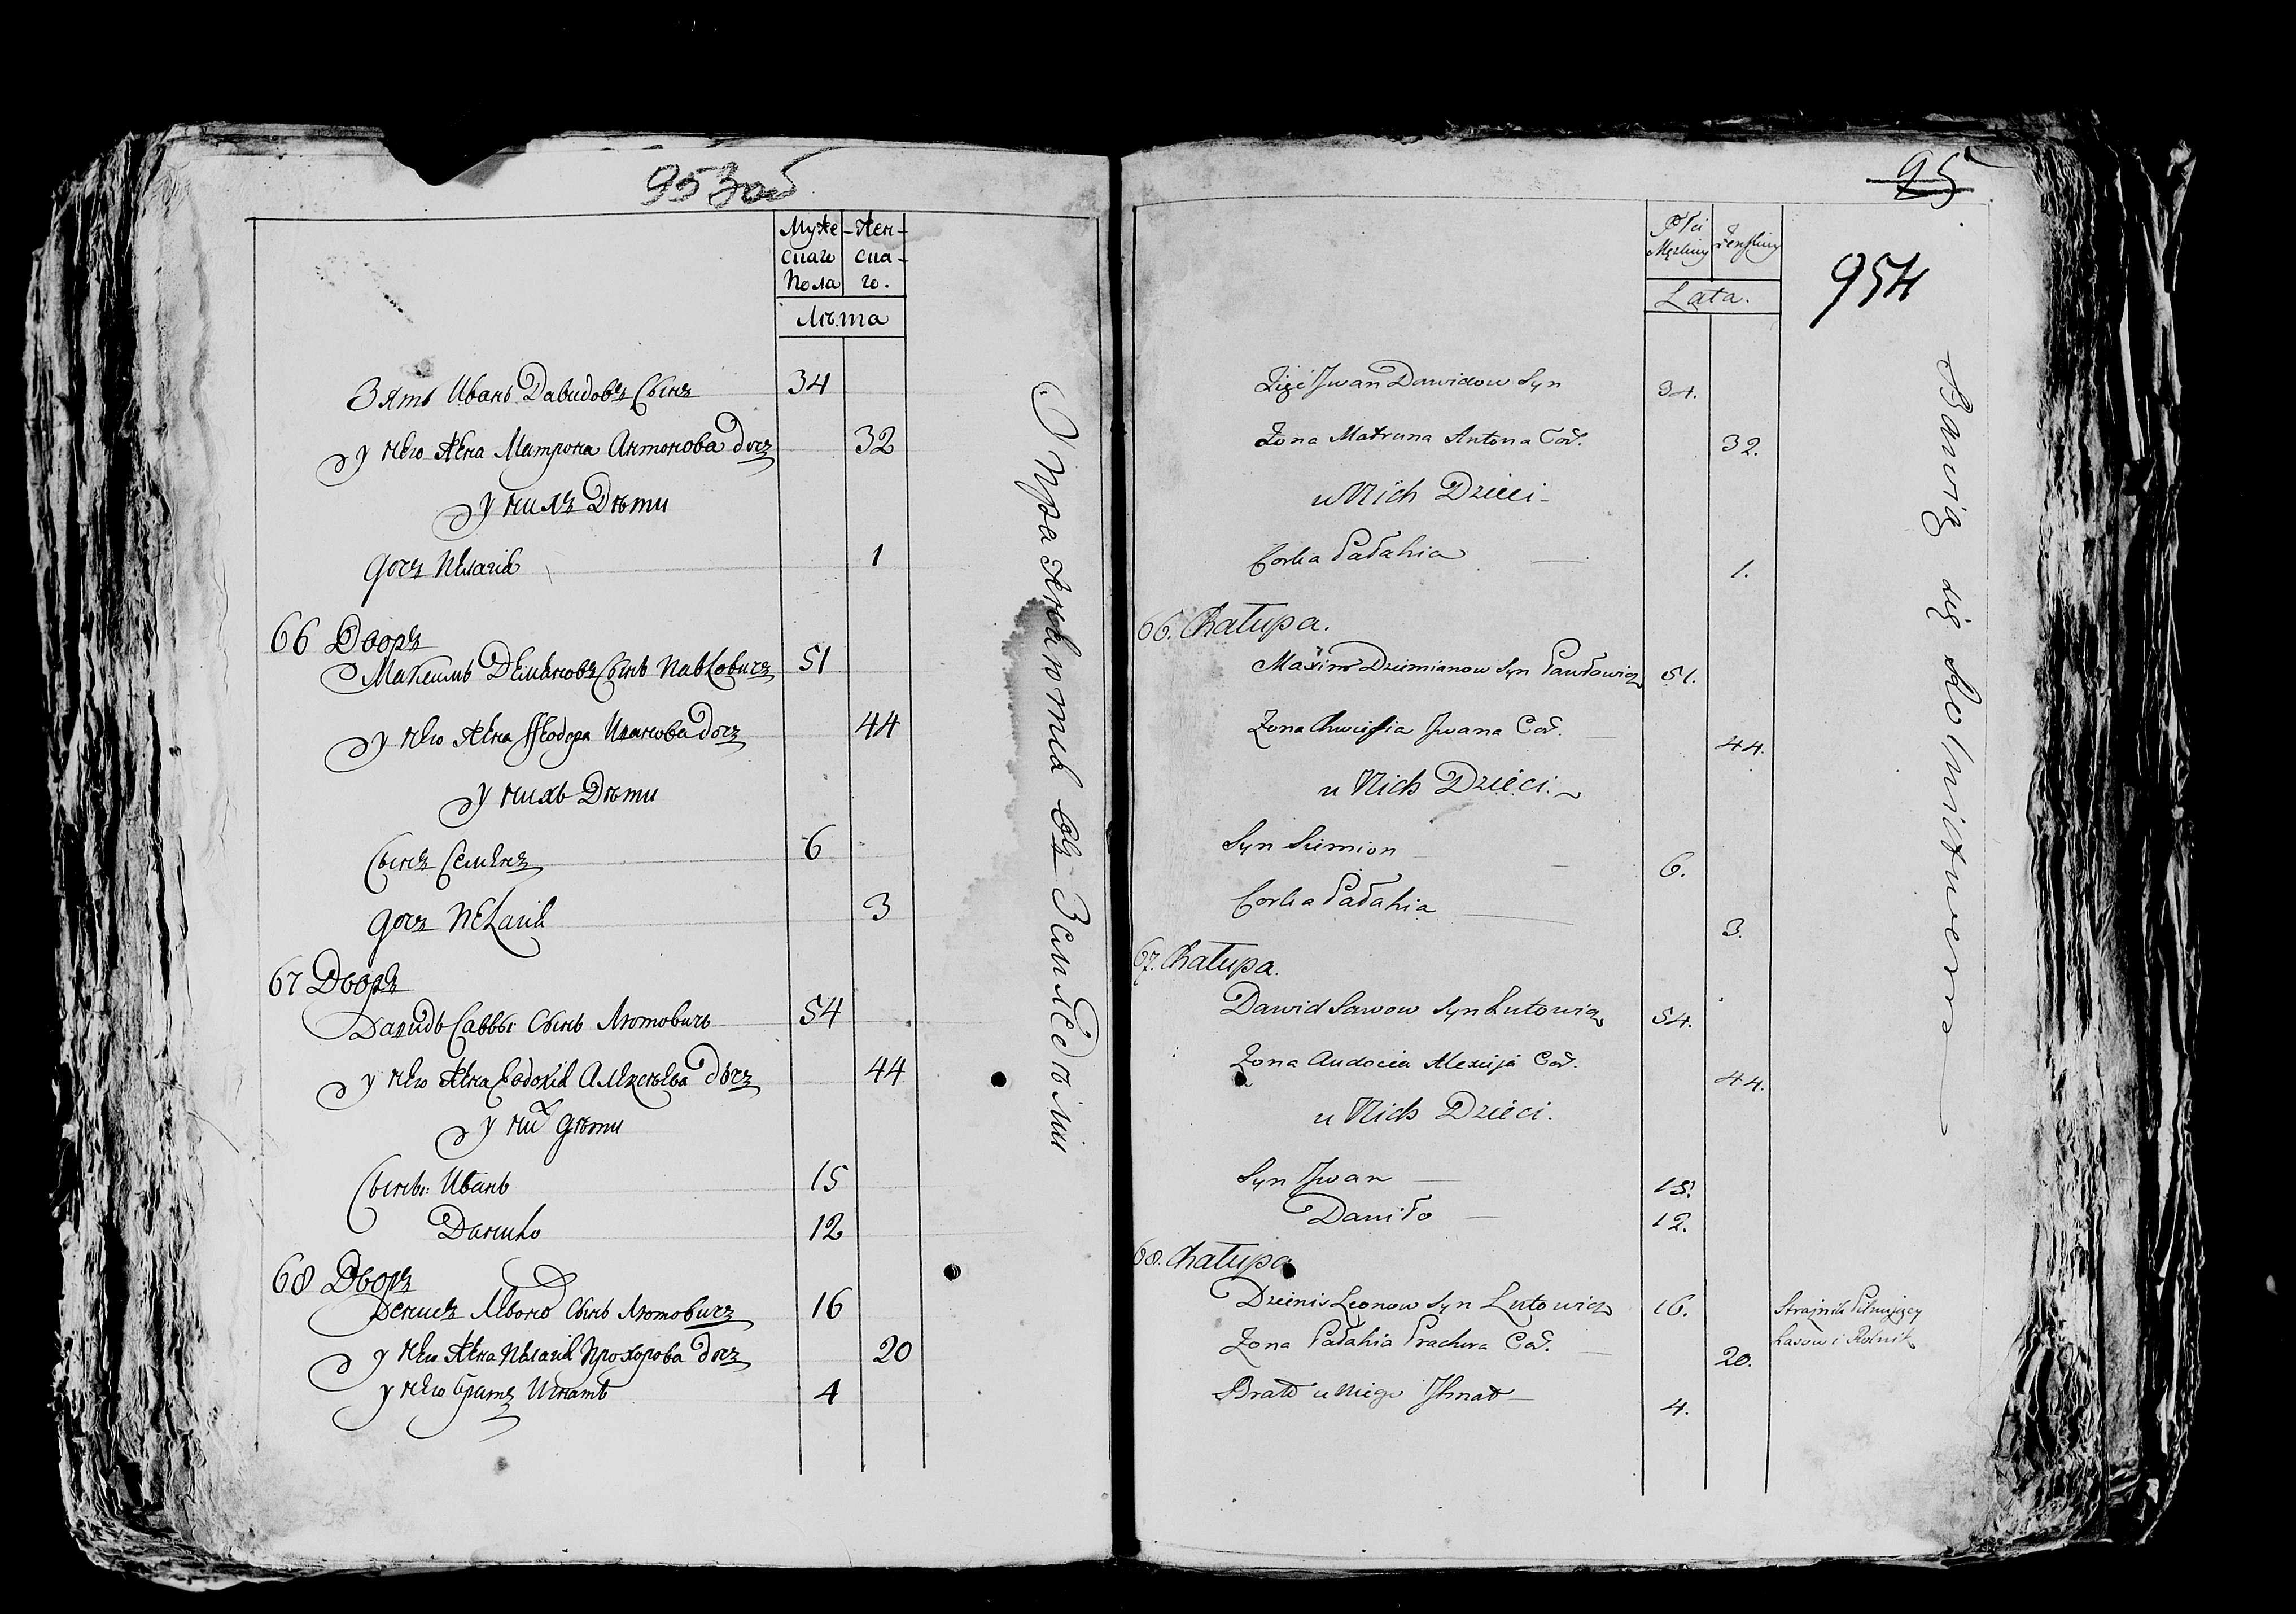 953 об
Муже- Жен-
скаго ска-
Пола го.
Лѣта
Зять Иванъ Давидовъ Сынъ 34
у него жена Матрона Антонова дочъ 32
у нихъ Дѣти
дочъ Пелагія 1
66 Дворъ
Максимъ Демьяновъ Сынъ Павловичъ 51
у него жена Ѳеодора Иванова дочъ 44
у нихъ Дѣти
Сынъ Семенъ 6
дочъ Пелагія 3
67 Дворъ
Давидъ Саввы Сынъ Лютовичъ 54
у него жена Евдокія Алексѣева дочъ 44
у них дѣти
Сыны: Иванъ 15
Данило 12
68 Дворъ
Денисъ Левона Сынъ Лютовичъ 16
у него жена Пелагія Прохорова дочъ 20
у него братъ Игнатъ 4
Упражняются въ Земледѣліи
95
954
Płci
Męzkiey Żenskiey
Lata.
Zięć Jwan Dawidow Syn 34.
Żona Matruna Antona Cór. 32.
u Nich Dzieci
Corka Pałahia 1.
66. Chałupa.
Maxim Dziemianow Syn Pawłowicz 51.
Żona Jwana Cór. 44.
u Nich Dzieci.
Syn Siemion 6.
Corka Pałahia 3.
67. Chałupa.
Dawid Sawow Syn Lutowicz 54.
Żona Audocia Alexieja Cór. 44.
u Nich Dzieci.
Syn Jwan 15.
Daniło 12.
68. Chałupa
Dzienis Leonow Syn Lutowicz 16.
Strażnik Pilnujący
Żona Pałahia Prachora Cór. 20.
Lasow i Rolnik
Brat u niego Jhnat 4.
Bawią się Rolnictwem